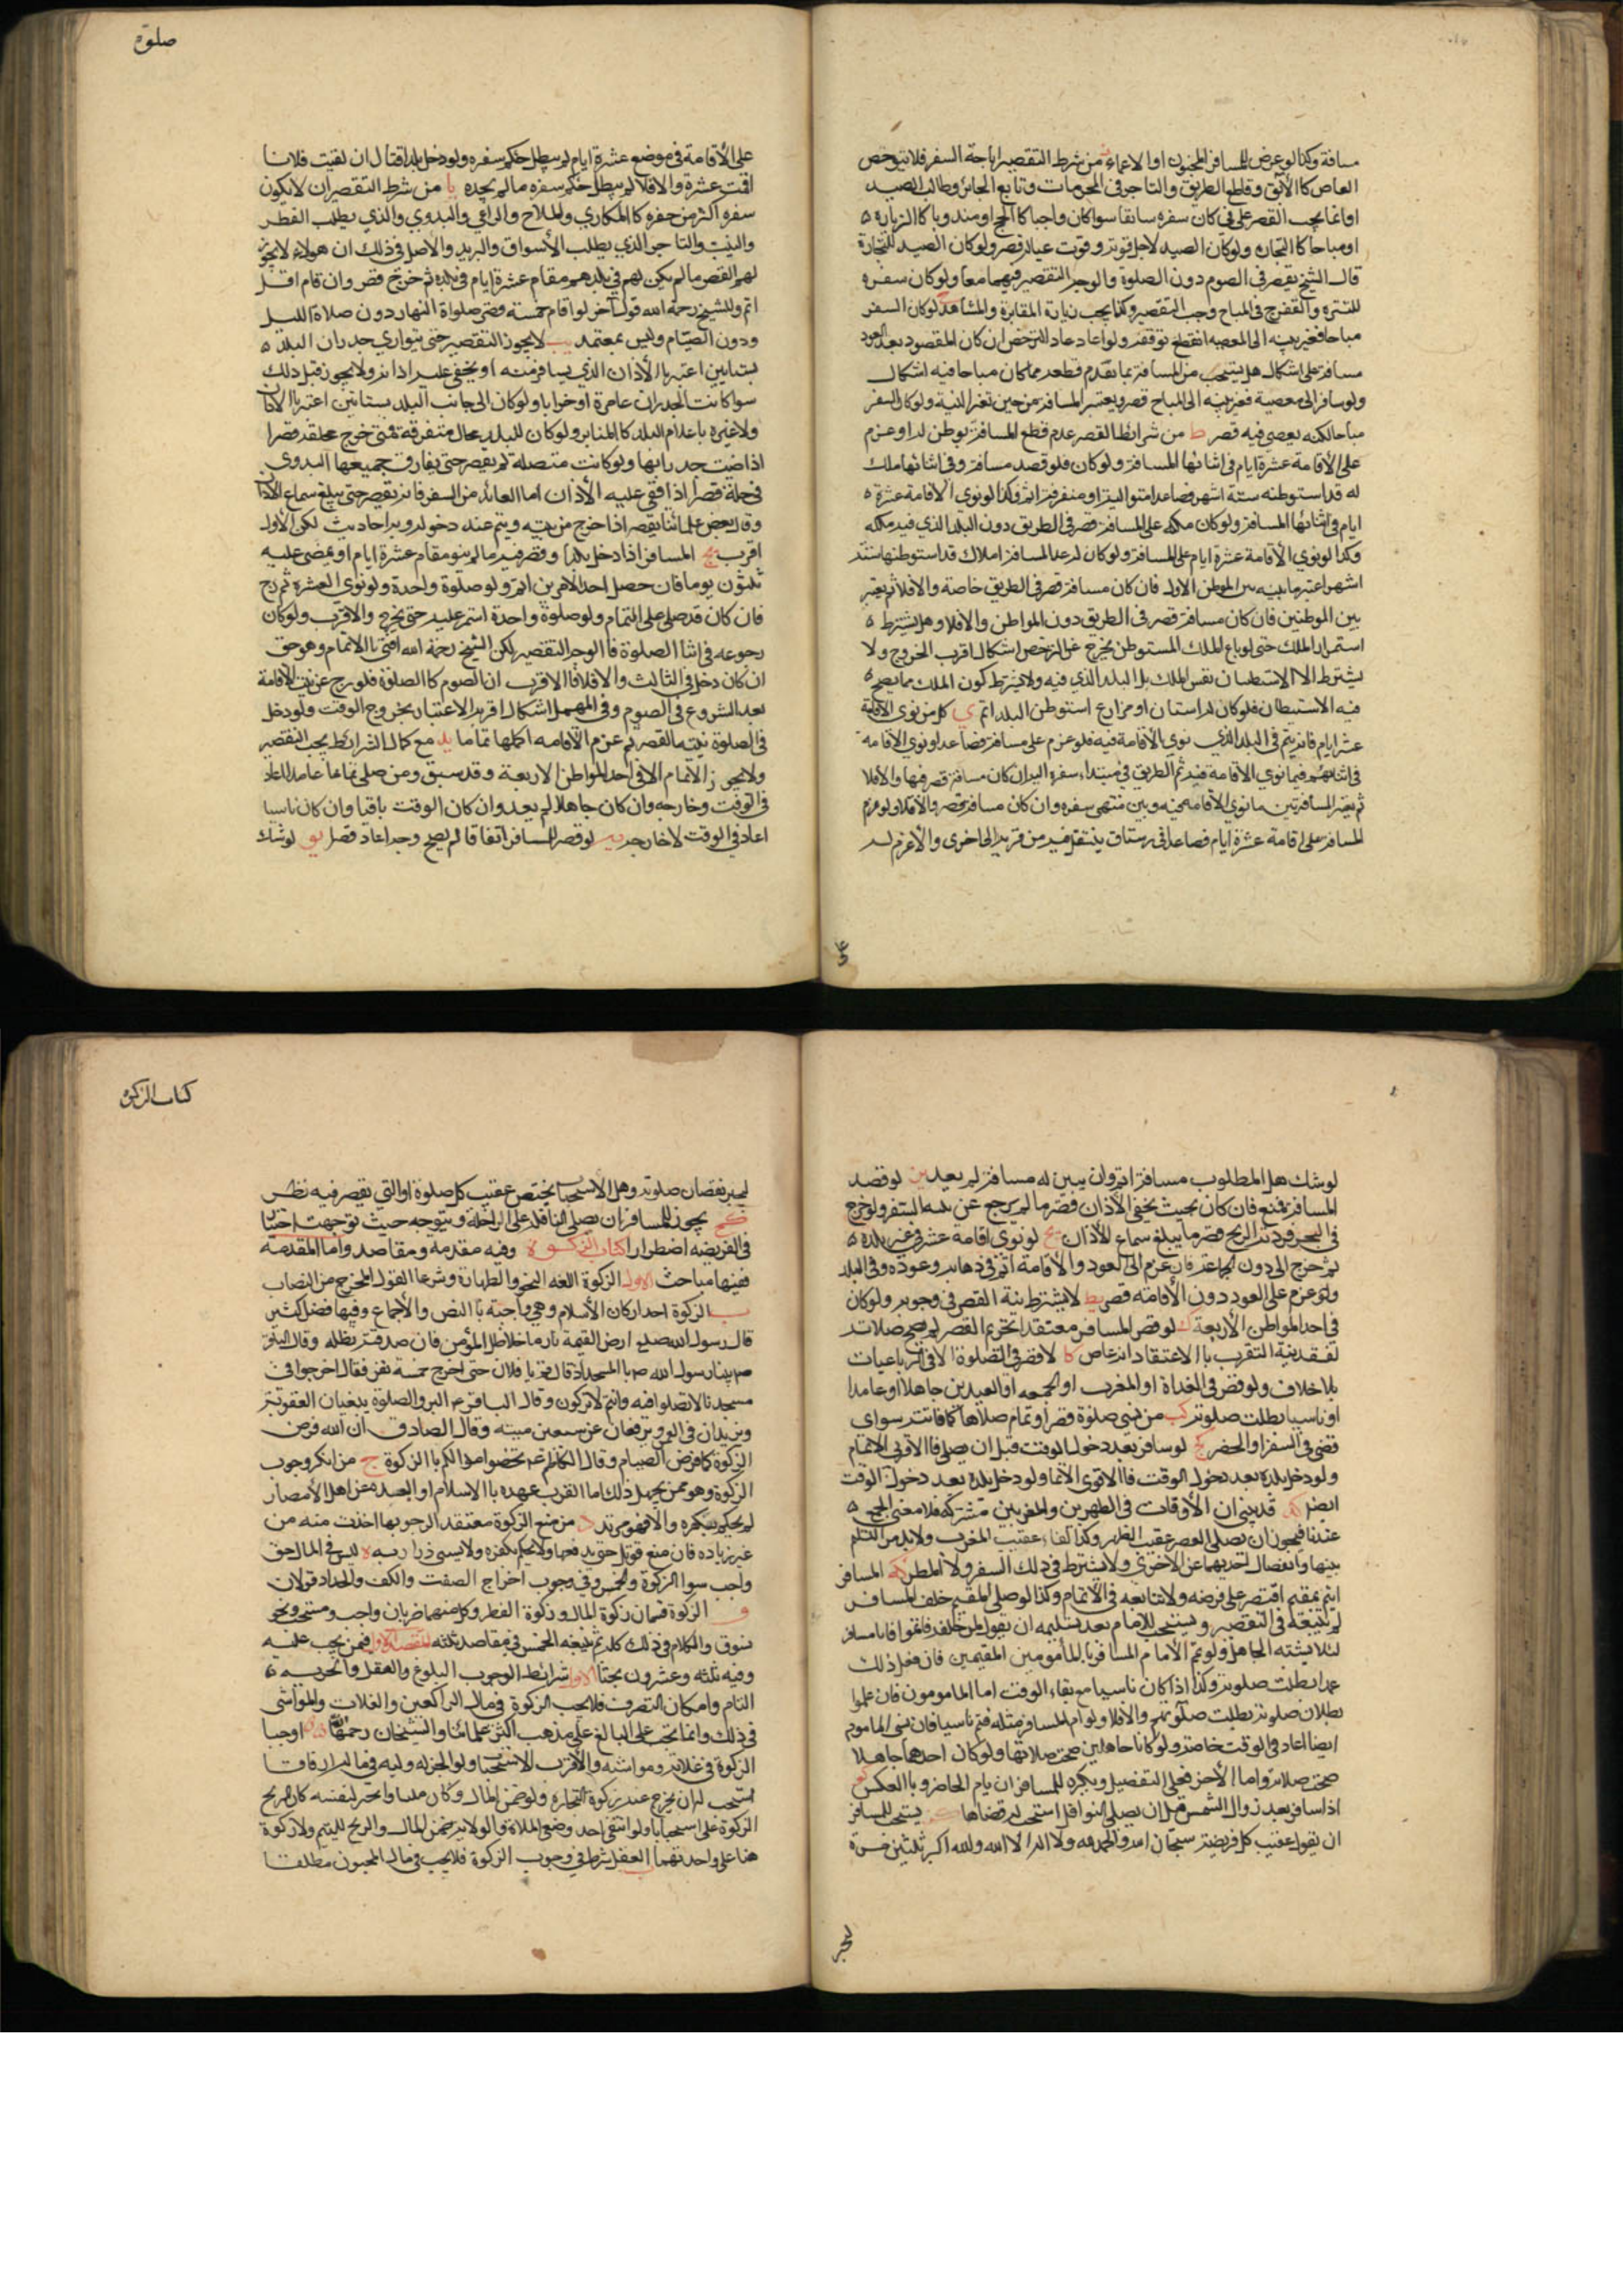 مسافة وكذا لو عرض للمسافر الجنون او الاغماء من شرط التقصير اباحة السفر فلا يترخص
العاصى كالآبق وقاطع الطريق والتاجر فى المحرمات وتابع الجائر وطالب الصيد
وانما يجب القصر على من كان سفره سايغا سوا كان واجبا كالحج او مندوبا كالزيارة
او مباحا كالتجاره ولو كان الصيد لاجل قوته وقوت عياله قصر ولو كان الصيد للتجارة
قال الشيخ يقصر فى الصوم دون الصلوة والوجه التقصير فيهما معا ولو كان سفره
للتنزه والتفرج فى المباح وجب التقصير وكذا يجب زيارة المقابر والمشاهد لو كان السفر
مباحا فغير نيته الى المعصيه انقطع ترخصه ولو اعاد عاد الترخص ان كان المقصود بعد العود
مسافة على اشكال هل يحتسب من المسافة بما تقدم قطعه مما كان مباحا فيه اشكال
ولو سافر الى معصية فغير نيته الى المباح قصر ويعتبر المسافة من حين تغير النية ولو كان السفر
مباحا لكنه يعصى فيه قصر ط من شرائط القصر عدم قطع المسافة بوطن له او عزم
على الأقامة عشرة ايام فى اثنائها المسافة ولو كان فلو قصد مسافة وفى اثنائها ملك
له قد استوطنه ستة اشهر فصاعدا متوالية او متفرقة اتم وكذا لو نوى الاقامة عشرة
ايام فى اثنائها المسافة ولو كان ملكه على المسافة قصر فى الطريق دون البلد الذي فيه ملكه
وكذا لو نوى الأقامة عشرة ايام على المسافة ولو كان له عدا المسافة املاك قد استوطنها ستة
اشهر اعتبر ما بينه بين الموطن الاول فان كان مسافة قصر فى الطريق خاصة والافلا ثم يعتبر
بين الموطنين فان كان مسافة قصر فى الطريق دون المواطن والافلا وهل يشترط
استمرار الملك حتى لو باع الملك المستوطن يخرج عن الترخص اشكال اقرب الخروج ولا
يشترط الا الاستيطان نفس الملك بل البلد الذي فيه ولا يشترط كون الملك مما يصح
فيه الاستيطان فلو كان له بستان او مزارع استوطن البلد اتم ى كل من نوى الاقامة
عشر ايام فانه يتم فى البلد الذي نوى الاقامة فيه فلو عزم على مسافة فصاعدا ونوى الاقامه
فى اثنائهم فيما نوى الاقامة فيه ثم الطريق فى مبتداء سفره اليه ان كان مسافة قصر فيها والافلا
ثم يعتبر المسافة بين ما نوى الأقامة فيه وبين منتهى سفره وان كان مسافة قصر والافلا ولو عزم
المسافر على اقامة عشرة ايام فصاعدا فى رستاق ينتقل فيه من قرية الى اخرى والاعزم له
على
صلوة
على الأقامة فى موضع عشرة ايام لم يبطل حكم سفره ولو دخل بلدا فقال ان لقيت فلانا
اقمت عشرة والافلا لم يبطل حكم سفره ما لم يجده يا من شرط التقصير ان لا يكون
سفره اكثر من حضره كالمكاري والملاح والراعي والبدوي والذي يطلب القطر
والنبت والتاجر الذي يطلب الأسواق والبريد والاصل فى ذلك ان هولاء لا يجوز
لهم القصر ما لم يكن لهم فى بلدهم مقام عشرة ايام فى بلده ثم خرج قصر وان قام اقل
اتم وللشيخ رحمه الله قول آخر لو اقام خمسة قصر صلواة النهار دون صلاة الليل
ودون الصيام وليس بمعتمد يب لا يجوز التقصير حتى يتوارى جدران البلد
بتباين اعتبر بالأذان الذي يسافر منه او يخفى عليه اذانه ولا يجوز قبل ذلك
سوا كانت الجدران عامرة او خرابا ولو كان الى جانب البلد بساتين اعتبر بالاذان
ولا غيره باعلام البلد كالمنابر ولو كان للبلد محال متفرقة فمتى خرج محلة قصر
اذا ضمت جدرانها ولو كانت متصلة لم يقصر حتى يفارق جميعها البدوي
فى حلة قصر اذا خفي عليه الأذان اما العائد من السفر فانه يقصر حتى يبلغ سماع الاذان
وقال بعض علمائنا يقصر اذا خرج من بيته ويتم عند دخوله وبه احاديث لكن الأول
اقرب يج المسافر اذا دخل بلدا وقصر فيه ما لم ينو مقام عشرة ايام او يمضى عليه
ثلثون يوما فان حصل احد الامرين اتم ولو صلوة واحدة ولو نوى العشرة ثم رجع
فان كان قد صلى على التمام ولو صلوة واحدة استمر عليه حتى يخرج والاقرب ولو كان
رجوعه فى اثنا الصلوة فالوجه التقصير لكن الشيخ رحمة الله افتى بالاتمام وهو حق
ان كان دخل فى الثالث والافلا الاقرب ان الصوم كالصلوة فلو رجع عن نية الأقامة
بعد الشروع فى الصوم وفى المهمل اشكال اقربه الاعتبار بخروج الوقت ولو دخل
فى الصلوة نيته القصر ثم عزم الأقامه اكملها تماما يد مع كمال الشرائط يجب التقصير
ولا يجوز الاتمام الا فى احد المواطن الاربعة وقد سبق ومن صلى تماما عامدا اعاد
فى الوقت وخارجه وان كان جاهلا لم يعد وان كان الوقت باقيا وان كان ناسيا
اعاد فى الوقت لا خارجه يه لو قصر المسافر اتفاقا لم يصح وجب اعادة قصرا يو لو شك
لو شك هل المطلوب مسافة اتم وان يبين له مسافة لم يعد يز لو قصد
المسافر فمنع فان كان بحيث يخفى الأذان قصر ما لم يرجع عن نية السفر ولو خرج
فى البحر فردته الريح قصر ما يبلغ سماع للأذان يح لو نوى اقامة عشر فى غير بلده
ثم خرج الى دون المسافة فان عزم الى العود والأقامة اتم فى ذهابه وعوده وفى البلد
ولو عزم على العود دون الأقامه قصر يط لا يشترط نية القصر فى وجوبه ولو كان
فى احد المواطن الأربعة ك لو قصر المسافر معتقدا تحريم القصر لم يصح صلاته
لفقد نية التقرب بالاعتقاد انه عاص كا لا قصر فى الصلوة الا فى الرباعيات
بلا خلاف ولو قصر فى الغداة او المغرب او الجمعه او العيدين جاهلا او عامدا
او ناسيا بطلت صلوته كب من نسى صلوة قصر او تمام صلاها كما فاتته سوا
قضى فى السفر او الحضر كج لو سافر بعد دخول الوقت قبل ان يصلى فالاقرب الاتمام
ولو دخل بلده بعد دخول الوقت فالاقوى الاتمام ولو دخل بلده بعد دخول الوقت
ايضا كد قد بيني ان الأوقات فى الظهرين والمغربين مشتركة فلا معنى للجمع
عندنا فيجوز ان يصلى العصر عقيب الظهر وكذا العشاء عقيب المغرب ولابد من
بينهما وانفصال احديهما عن الاخرى ولا يشترط فى ذلك السفر ولا المطر كه المسافر
ايتم بمقيم اقتصر على فرضه ولا يتابعه فى الاتمام وكذا لو صلى المقيم خلف المسافر
لم يتبعه فى التقصير ويستحب للإمام بعد تسليمه ان يقول لمن خلفه فاتموا فانا مسافر
لئلا يشتبه الجاهل ولو تم الامام المسافر بالمأمومين المقيمين فان فعل ذلك
عمدا بطلت صلوته وكذا اذا كان ناسيا مع بقاء الوقت اما المامومون فان علموا
بطلان صلوته بطلت صلوتهم والافلا ولو ام المسافر مثله فتم ناسيا فان نسى الماموم
ايضا اعاد فى الوقت خاصة ولو كانا جاهلين صحت صلاتها ولو كان احدهما جاهلا
صحت صلاته واما الأخر فعلى التفصيل ويكره للمسافر ان يام الحاضر وبالعكس كو
اذا سافر بعد زوال الشمس قبل ان يصلى النوافل استحب له قضاها كز يستحب للمسافر
ان يقول عقيب كل فريضة سبحان الله والحمد لله ولا اله الا الله والله اكبر ثلثين مرة
لجبر
كتاب الزكوة
لجبر نقصان صلوته وهل الأستحباب يختص عقيب كل صلوة او التي يقصر فيه نظر
كح يجوز للمسافر ان يصلى النافلة على الراحلة ويتوجه حيث توجهت اختيارا
فى الفريضه اضطرارا كتاب الزكوة وفيه مقدمة ومقاصد واما المقدمه
ففيها مباحث الاول الزكوة اللغه النمو والطهارة وشرعا القول المخرج من النصاب
ب الزكوة احد اركان الأسلام وهي واجبة بالنص والأجماع وفيها فضل كثير
قال رسول الله صلع ارض القيمة نار ما خلا ظل المؤمن فان صدقته تظله وقال الباقر
بينا رسول الله ص بالمسجد اذ قال قم يا فلان حتى اخرج خمسة نفر فقال اخرجوا من
مسجدنا لا تصلوا فيه وانتم لا تزكون وقال الباقر ع البر والصلوة ينفيان الفقر
ويزيدان فى العمر ويرفعان عن سبعين ميتة وقال الصادق ان الله فرض
الزكوة كما فرض الصيام وقال الكاظم ع حصنوا اموالكم بالزكوة ج من انكر وجوب
الزكوة وهو ممن يجهل ذلك اما لقرب عهده بالاسلام او البعده عن اهل الأمصار
لم يحكم بكفره والا فهو مرتد د من منع الزكوة معتقدا لوجوبها اخذت منه من
غير زياده فان منع قوتل حتى يدفعها ولا يحكم بكفره ولا يسبى ذراريه ه ليس فى المال حق
واجب سوا الزكوة والخمس وفى وجوب اخراج الضغث والكف والجداد قولان
و الزكوة قسمان زكوة المال وزكوة الفطر وكل منهما ضربان واجب ومستحب ونحن
نسوق والكلام فى ذلك كله ثم نتبعه الخمس فى مقاصد ثلثه المقصد الاول فيمن يجب عليه
وفيه ثلثه وعشرون بحثا الاول شرائط الوجوب البلوغ والعقل والحريه
التام وامكان التصرف فلا يجب الزكوة فى مال الراكعين والغلات والمواشى
فى ذلك وانما تجب على البالغ على مذهب اكثر علمائنا والشيخان رحمهما الله اوجبا
الزكوة فى غلاته ومواشيه والأقرب الاستحباب ولو اتجر له وليه فى ماله ارفاقا
استحب له ان يخرج عنه زكوة التجارة ولو ضمن المال وكان مليا واتجر لنفسه كان الربح
الزكوة على استحبابا ولو انتفى احد وصفي الملائة والولاية ضمن المال والربح لليتيم ولا زكوة
هنا على واحد منهما ب العقل شرط فى وجوب الزكوة فلا يجب فى مال المجنون مطلقا